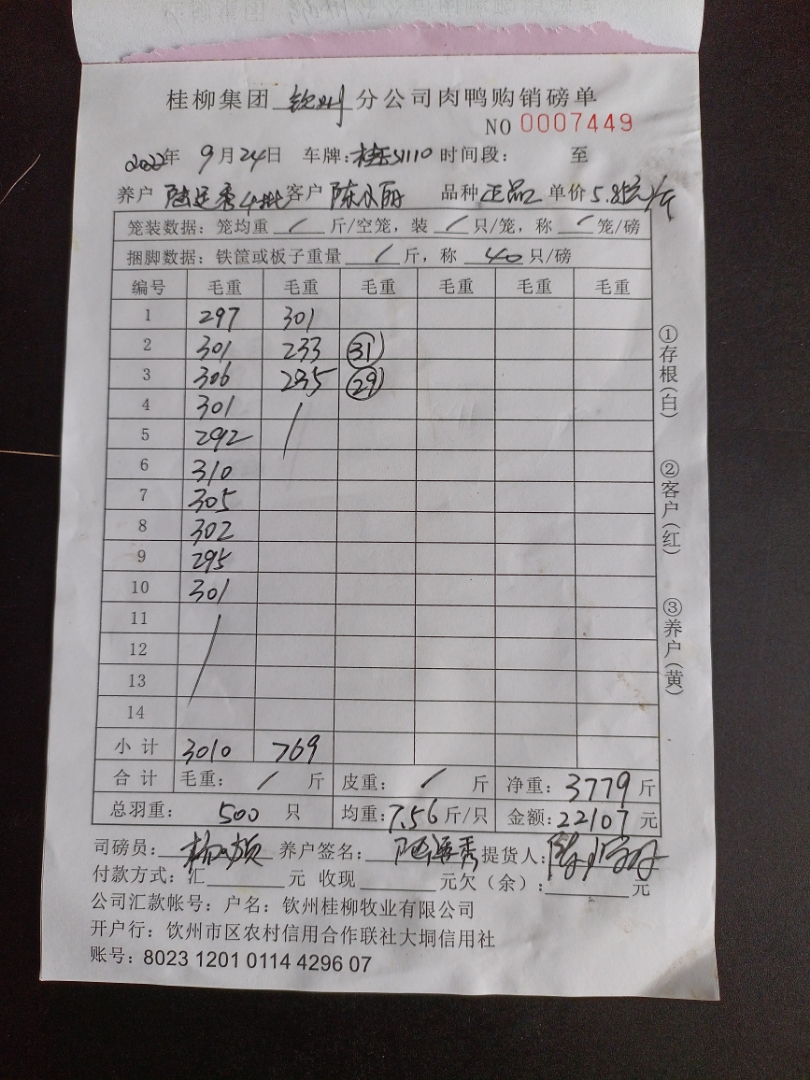 桂柳集团 钦州 分公司肉鸭购销磅单
NO 0007449
2022年 9月24日 车牌：桂 S1110 时间段： 至
养户 陆 秀4批 客户 陈 丽 品种 正品2 单价 5.85元/斤
笼装数据：笼均重 / 斤/空笼，装 / 只/笼，称 / 笼/磅
捆脚数据：铁筐或板子重量 / 斤，称 40 只/磅
编号 毛重 毛重 毛重 毛重 毛重 毛重
1 297 301
2 301 233 31
3 306 235 29
4 301 /
5 292
6 310
7 305
8 302
9 295
10 301
11 /
12
13
14
小计 3010 769
合计 毛重： / 斤 皮重： / 斤 净重：3779 斤
总羽重： 500 只 均重：7.56 斤/只 金额：22107 元
司磅员： 养户签名：陆 秀 提货人：
付款方式：汇 元 收现 元欠（余）： 元
公司汇款帐号：户名：钦州桂柳牧业有限公司
开户行：钦州市区农村信用合作联社大垌信用社
账号：8023 1201 0114 4296 07
①存根（白）
②客户（红）
③养户（黄）